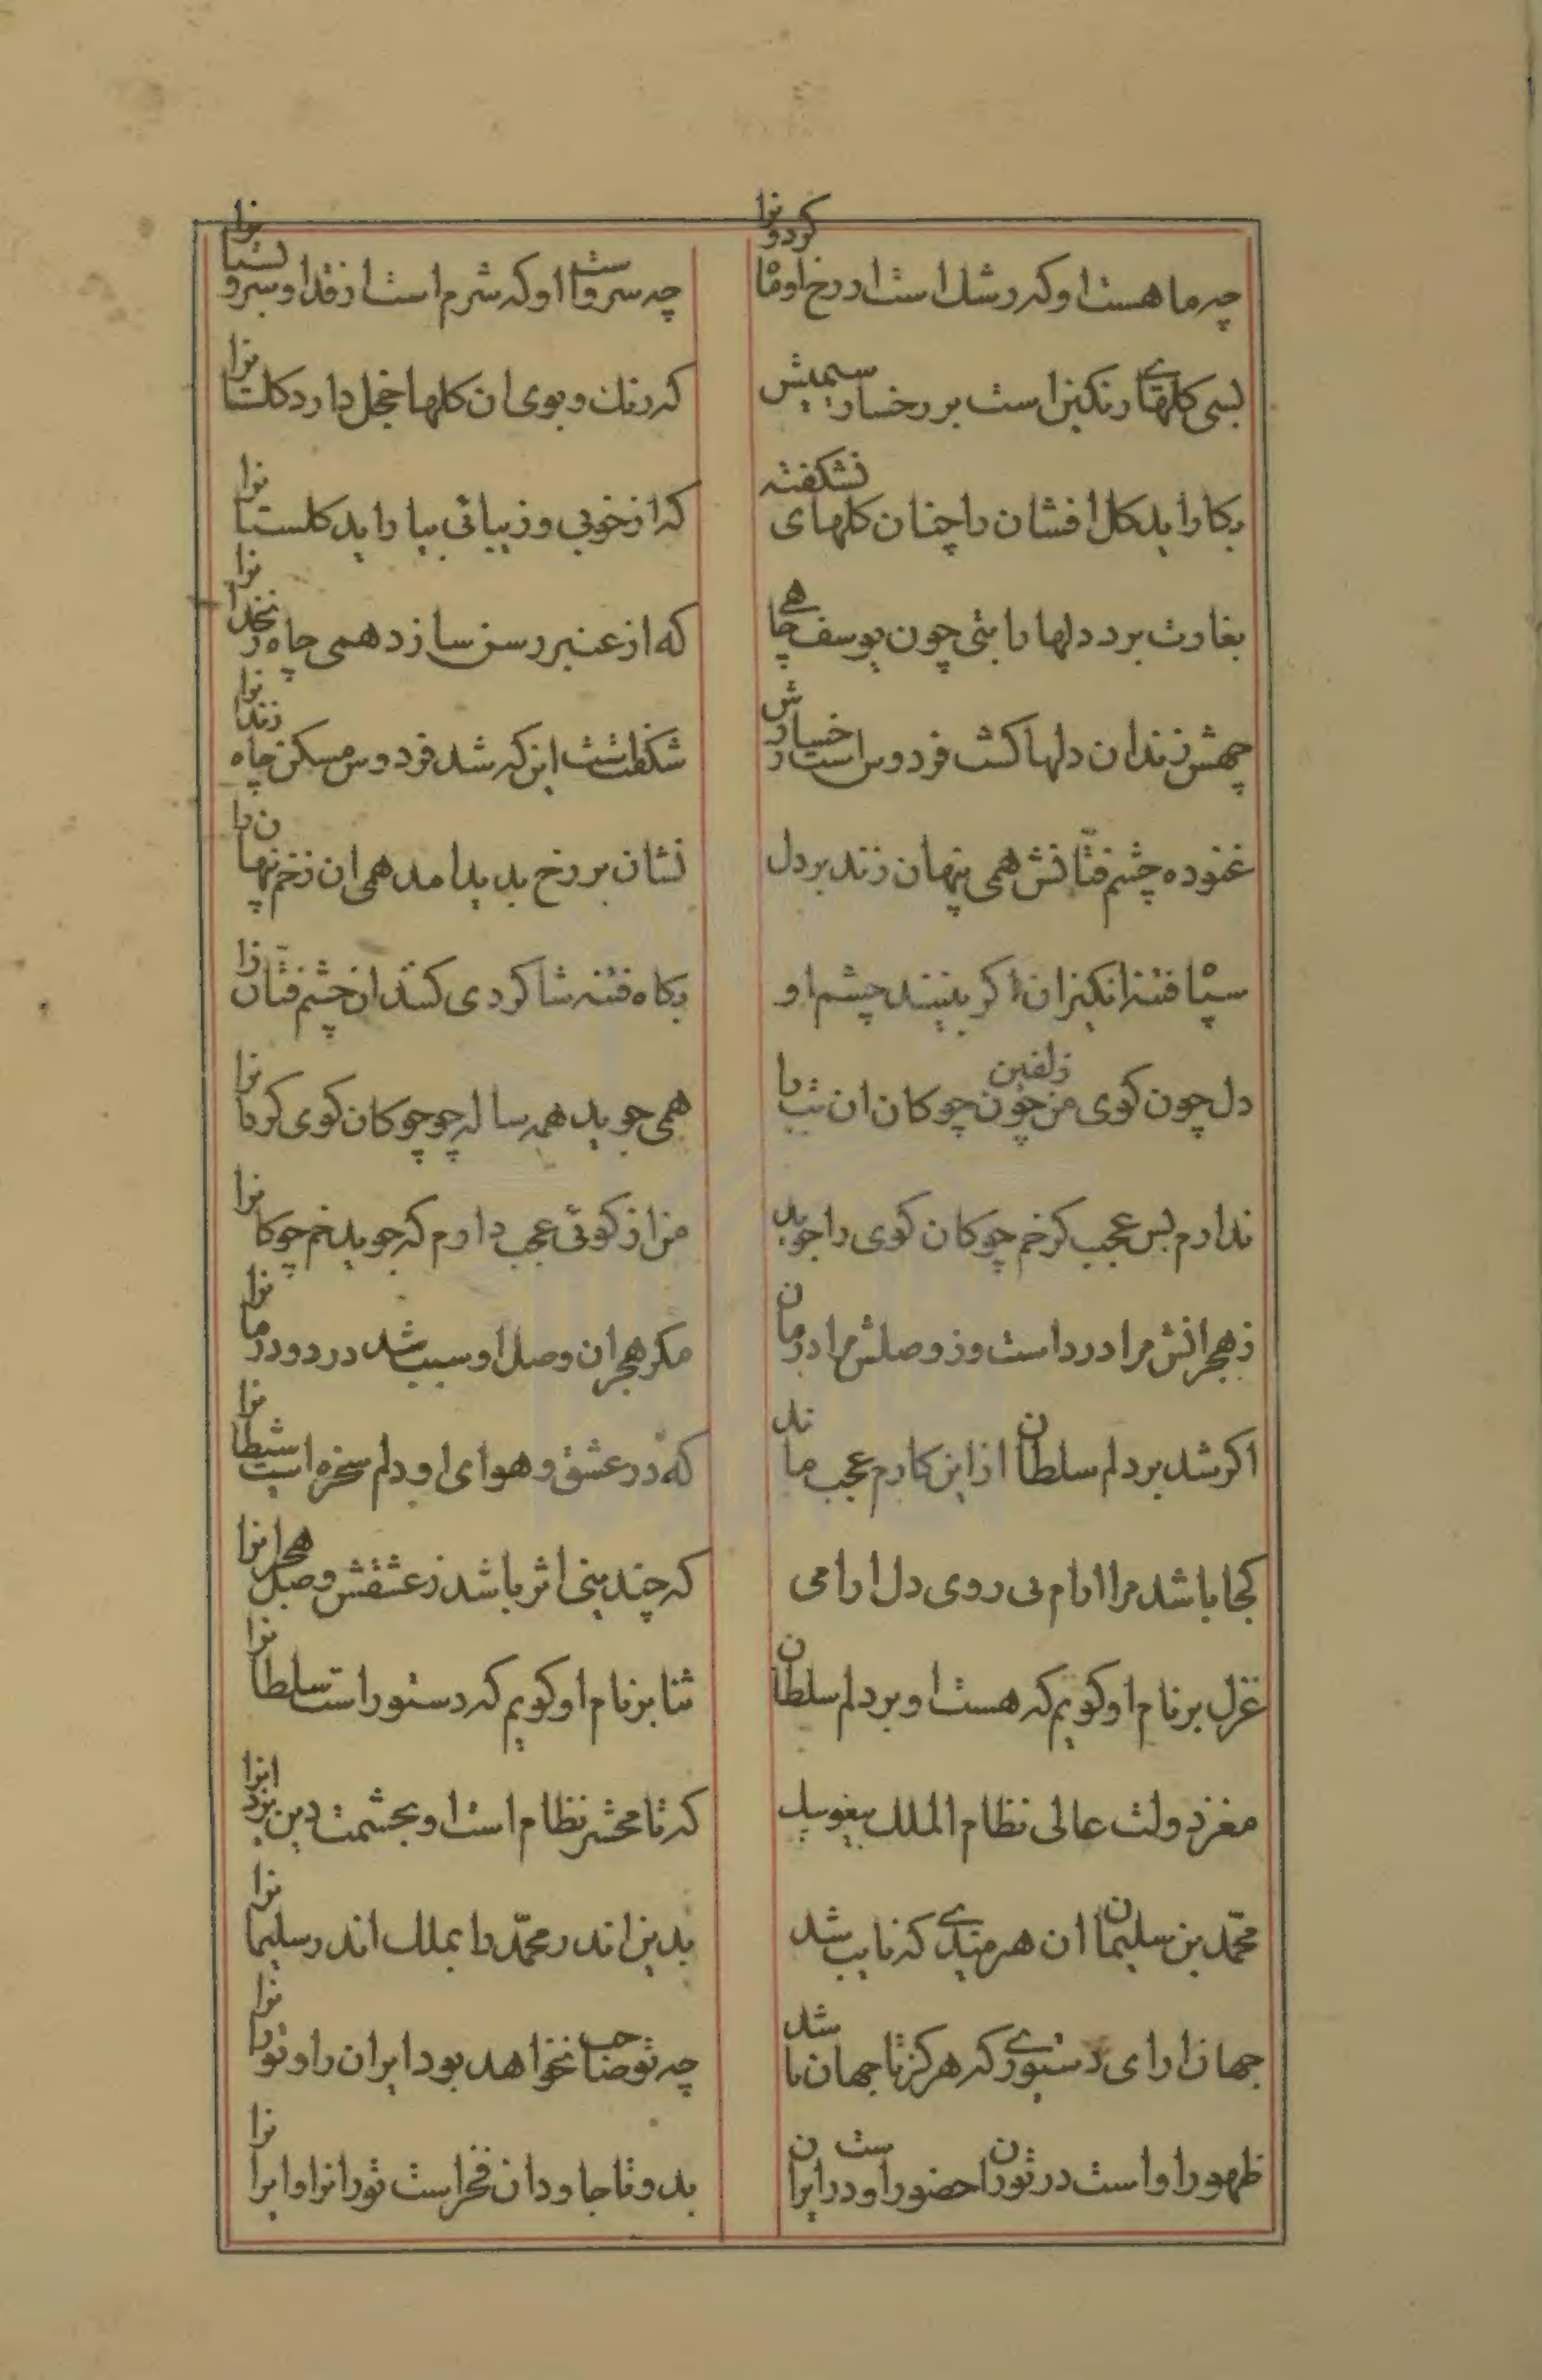 چه ماهست او که رشک است از رخ او ماه کردونرا
چه سروست او که شرم است از قد او سرو بستانرا
بسی کلهای رنکین است بر رخسار سیمینش
که رنک و بوی ان کلها خجل دارد کلستانرا
بکار اید کل افشان را چنان کلهای نشکفته
که از خوبی و زیبائی بیاراید کلستانرا
بغارت برد دلها را بتی چون یوسف چاهی
که از عنبر رسن سازد همی چاه زنخدانرا
چهش زندان دلها کشت فردوس است رخسارش
شکفتست این که شد فردوس مسکن چاه زندانرا
غنوده چشم فتّانش همی پنهان زند بر دل
نشان بر رخ پدید امد همی ان زخم پنهانرا
سپاه فتنه انکیزان اکر بینند چشم او
بکاه فتنه شاکردی کنند ان چشم فتّانرا
دل چون کوی من چون چوکان ان زلفین
همی جوید همه ساله چو چوکان کوی کردانرا
ندارم بس عجب کر خم چوکان کوی را جوید
من از کوئی عجب دارم که جوید خم چوکانرا
ز هجرانش مرا درد است وز وصلش مرا درمان
مکر هجران و وصل او سبب شد درد و درمانرا
اکر شد بر دلم سلطان از این کارم عجب ماند
که در عشق و هوای او دلم سخره است شیطانرا
کجا باشد مرا ارام بی روی دلارامی
که چندینی اثر باشد ز عشقش وصل هجرانرا
غزل بر نام او کویم که هست او بر دلم سلطان
ثنا بر نام او کویم که دستور است سلطانرا
مغز دولت عالی نظام الملک
که تا محشر نظام است او بحشمت دین یزدانرا
محمّد بن سلیمان ان هنرمندی که نایب شد
بدین اندر محمّد را بملک اندر سلیمانرا
جهان ارای دستوری که هرکز تا جهان باشد
چه تو صاحب نخواهد بود ایران را و تورانرا
ظهور او است در توران حضور اوست در ایران
بدو تا جاودان فخر است تورانرا و ایرانرا